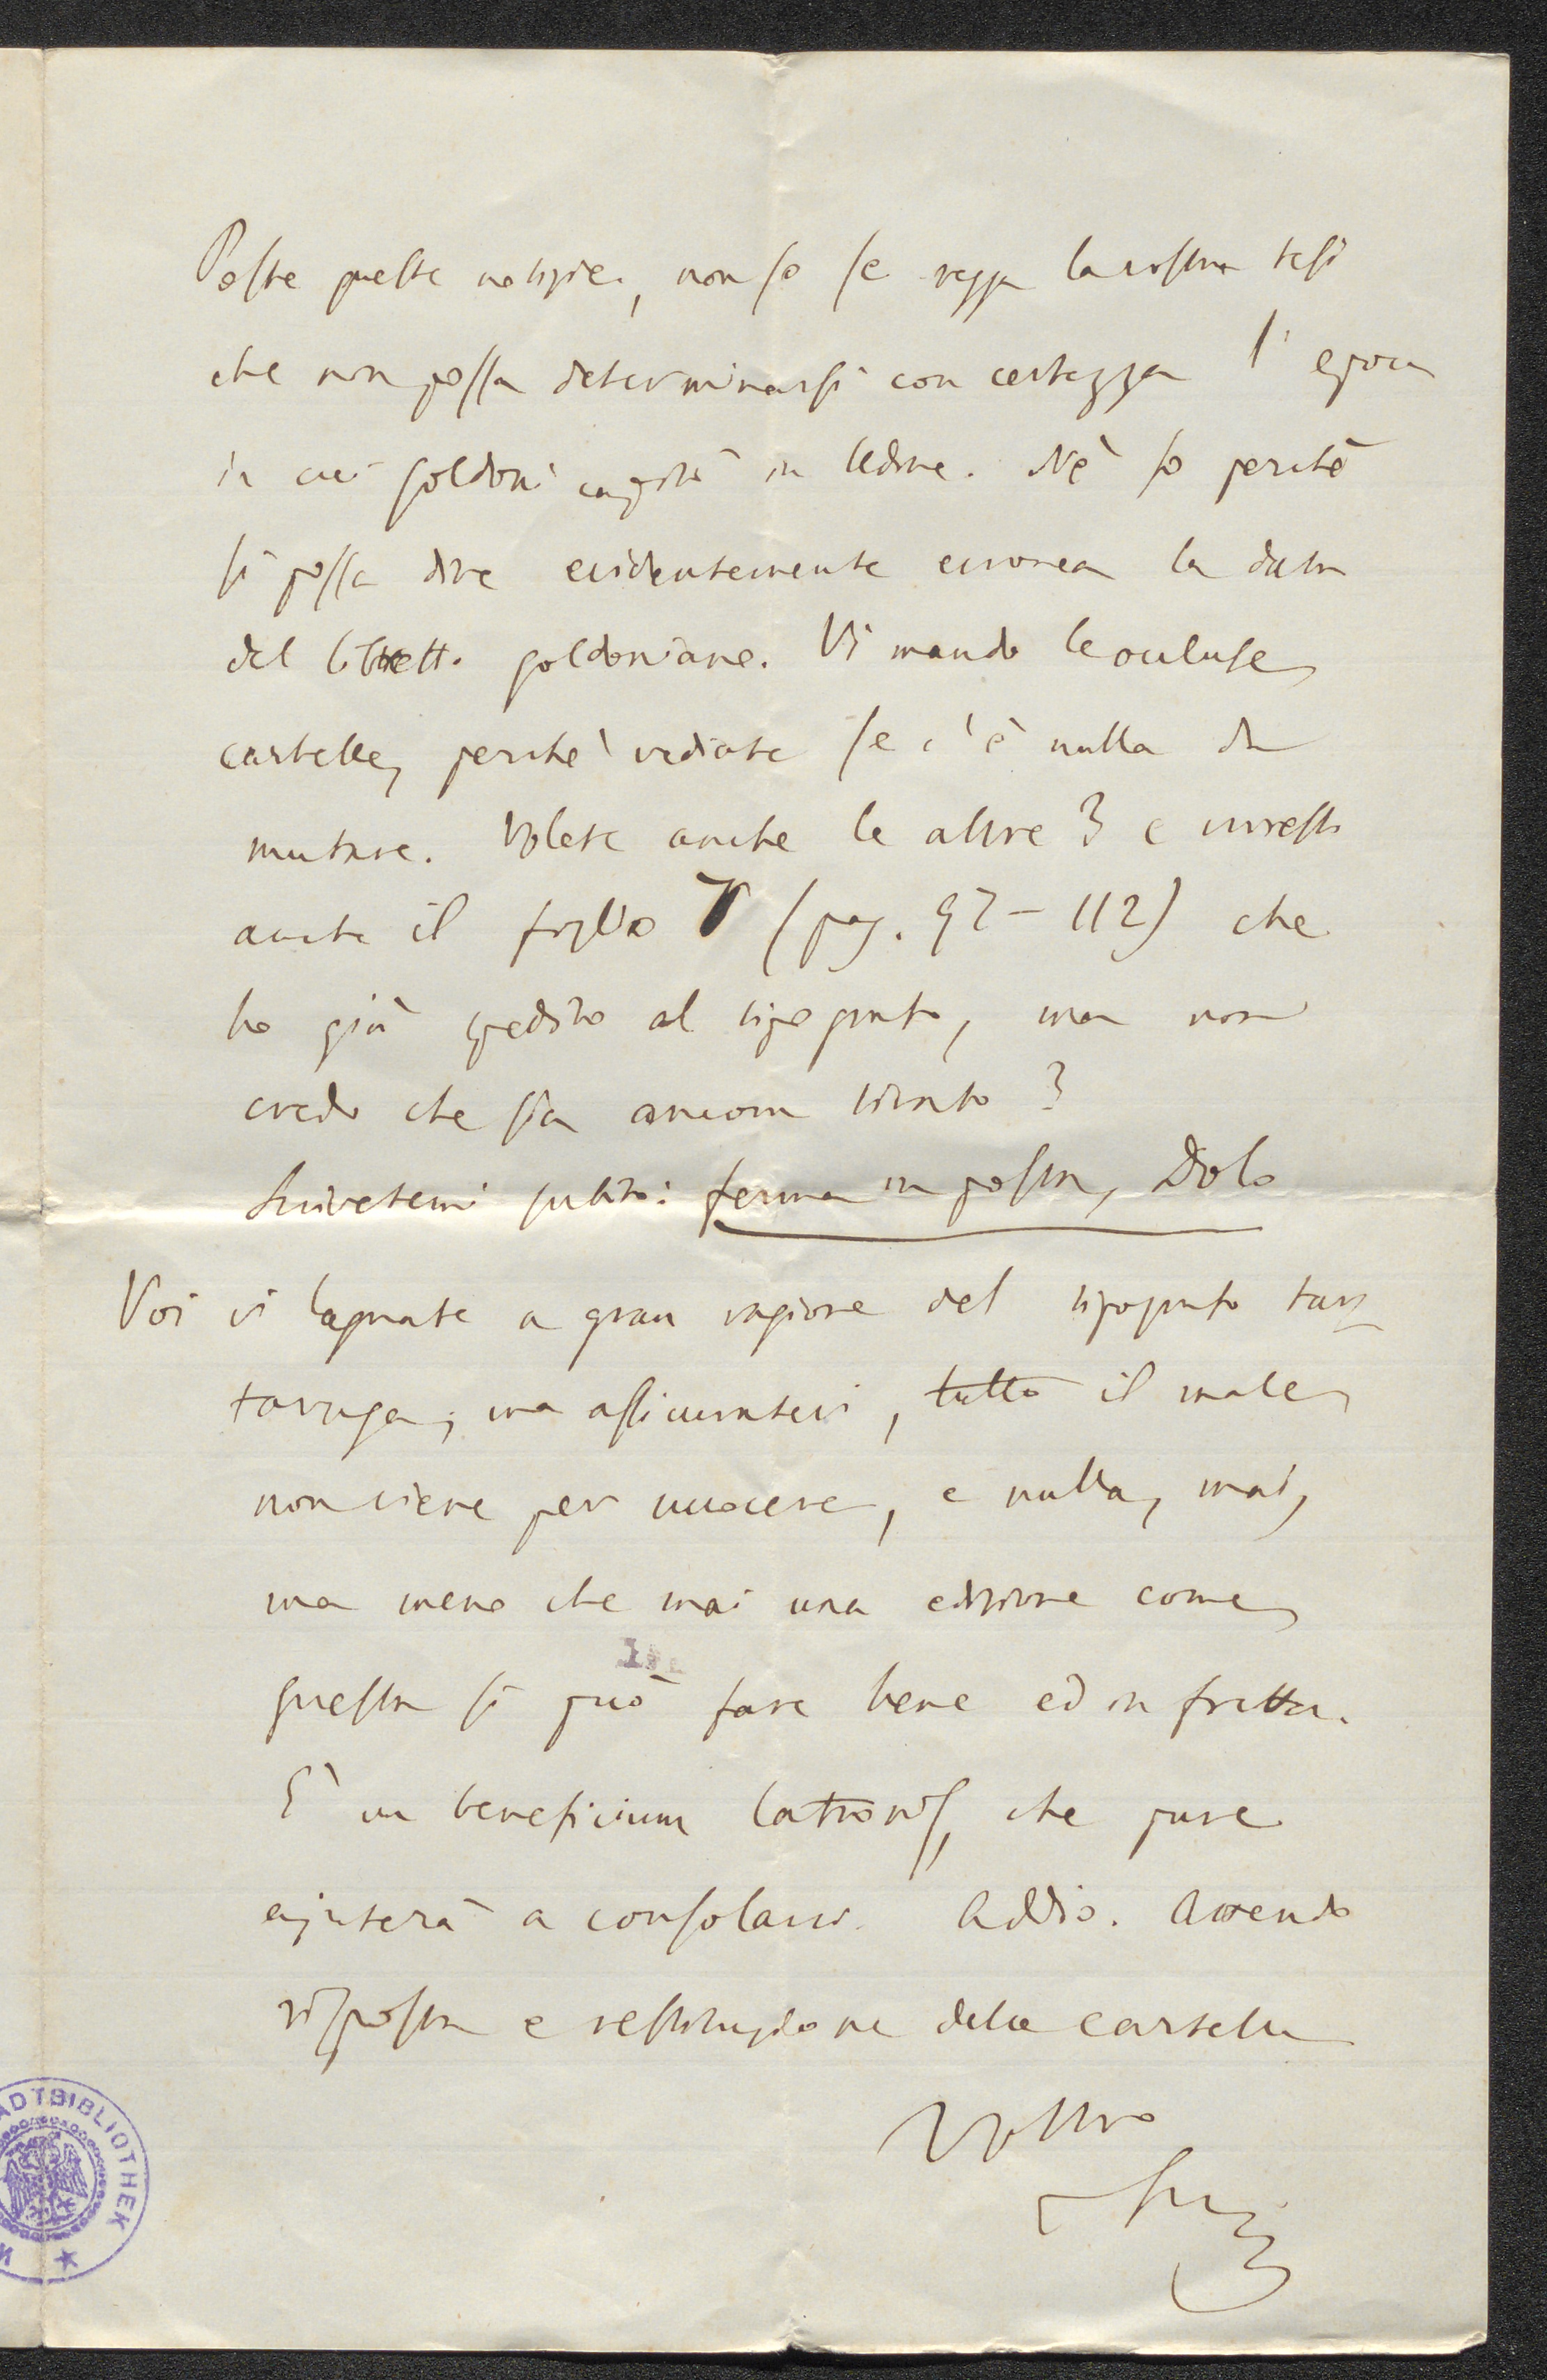 Poste queste notizie, non so se regga la vostra tesi
che non possa determinarsi con certezza l'epoca
in cui Goldoni capitò in Udine. Nè so perchè
si possa dire evidentemente erronea la data
del libretto goldoniano. Vi mando le accluse
cartelle, perchè vediate se c'è nulla da
mutare. Volete anche le altre? e vorreste
anche il foglio 7 (pag. 97-112) che
ho già spedito al tipografo, ma non
credo che sia ancora tirato?
Scrivetemi subito: ferma in posta, Dolo
Voi vi lagnate a gran ragione del tipografo tar
taruga; ma assicuratevi, tutto il male
non viene per nuocere, e nulla, mai,
ma meno che mai una edizione come
questa si può fare bene ed in fretta.
È un beneficium latronis, che pure
ajuterà a consolarvi. Addio. Attendo
risposta e restituzione delle cartelle
Vostro
ADTBIBLIOTHEK